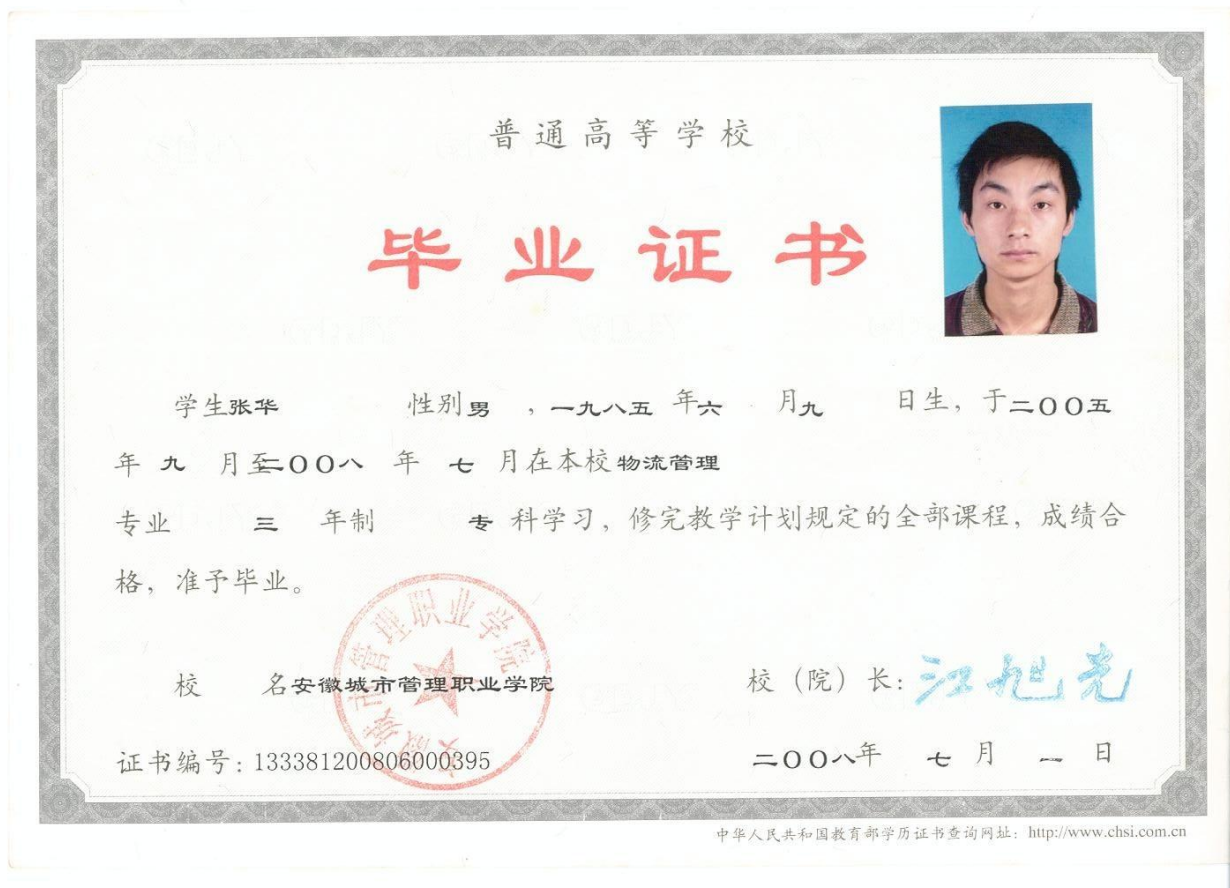 普通高等学校
毕业证书
学生张华 性别男，一九八五年六月九日生，于二〇〇五
年九月至二〇〇八年七月在本校物流管理
专业三年制专科学习，修完教学计划规定的全部课程，成绩合
格，准予毕业。
安徽城市管理职业学院
校名安徽城市管理职业学院 校（院）长：江旭光
证书编号：133381200806000395 二〇〇八年七月一日
中华人民共和国教育部学历证书查询网址：http://www.chsi.com.cn